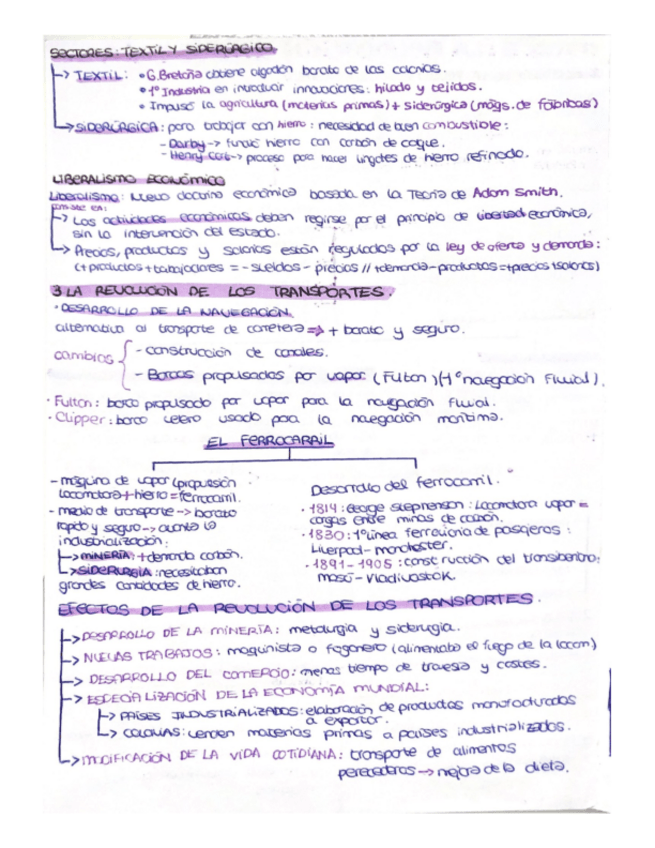 SECTORES: TEXTIL Y SIDERÚRGICO.
-> TEXTIL: • G.Bretaña obtiene algodón barato de las colonias.
• 1º Industria en introducir innovaciones: hilado y tejidos.
• Impulsó la agricultura (materias primas) + siderúrgica (máqs. de fábricas)
-> SIDERÚRGICA: para trabajar con hierro: necesidad de buen combustible:
- Darby -> fundió hierro con carbón de coque.
- Henry Cort -> proceso para hacer lingotes de hierro refinado.
LIBERALISMO ECONÓMICO
Liberalismo: Nueva doctrina económica basada en la Teoría de Adam Smith.
consiste en:
-> Las actividades económicas deben regirse por el principio de libertad económica,
sin la intervención del estado.
-> Precios, productos y salarios están regulados por la ley de oferta y demanda:
(+productos + trabajadores = - sueldos - precios // +demanda - productos = +precios +salarios)
3 LA REVOLUCIÓN DE LOS TRANSPORTES.
· DESARROLLO DE LA NAVEGACIÓN.
alternativa al transporte de carretera => + barato y seguro.
cambios { - construcción de canales.
- Barcos propulsados por vapor (Fulton) (1º navegación fluvial).
· Fulton: barco propulsado por vapor para la navegación fluvial.
· Clipper: barco velero usado para la navegación marítima.
EL FERROCARRIL
- máquina de vapor (propulsión
locomotora + hierro = ferrocarril.
- medio de transporte -> barato
rápido y seguro -> aumenta la
industrialización:
-> MINERÍA: + demanda carbón.
-> SIDERURGIA: necesitaban
grandes cantidades de hierro.
Desarrollo del ferrocarril.
· 1814: George Stephenson: Locomotora vapor =
cargas entre minas de carbón.
· 1830: 1º línea ferroviaria de pasajeros:
Liverpool - manchester.
· 1891 - 1905: construcción del transiberiano:
moscú - Vladivostok.
EFECTOS DE LA REVOLUCIÓN DE LOS TRANSPORTES.
-> DESARROLLO DE LA MINERÍA: metalurgia y siderurgia.
-> NUEVOS TRABAJOS: maquinista o fogonero (alimentaba el fuego de la locom)
-> DESARROLLO DEL COMERCIO: menos tiempo de travesía y costes.
-> ESPECIALIZACIÓN DE LA ECONOMÍA MUNDIAL:
-> PAÍSES INDUSTRIALIZADOS: elaboración de productos manufacturados
a exportar.
-> COLONIAS: venden materias primas a países industrializados.
-> MODIFICACIÓN DE LA VIDA COTIDIANA: transporte de alimentos
perecederos -> mejora de la dieta.